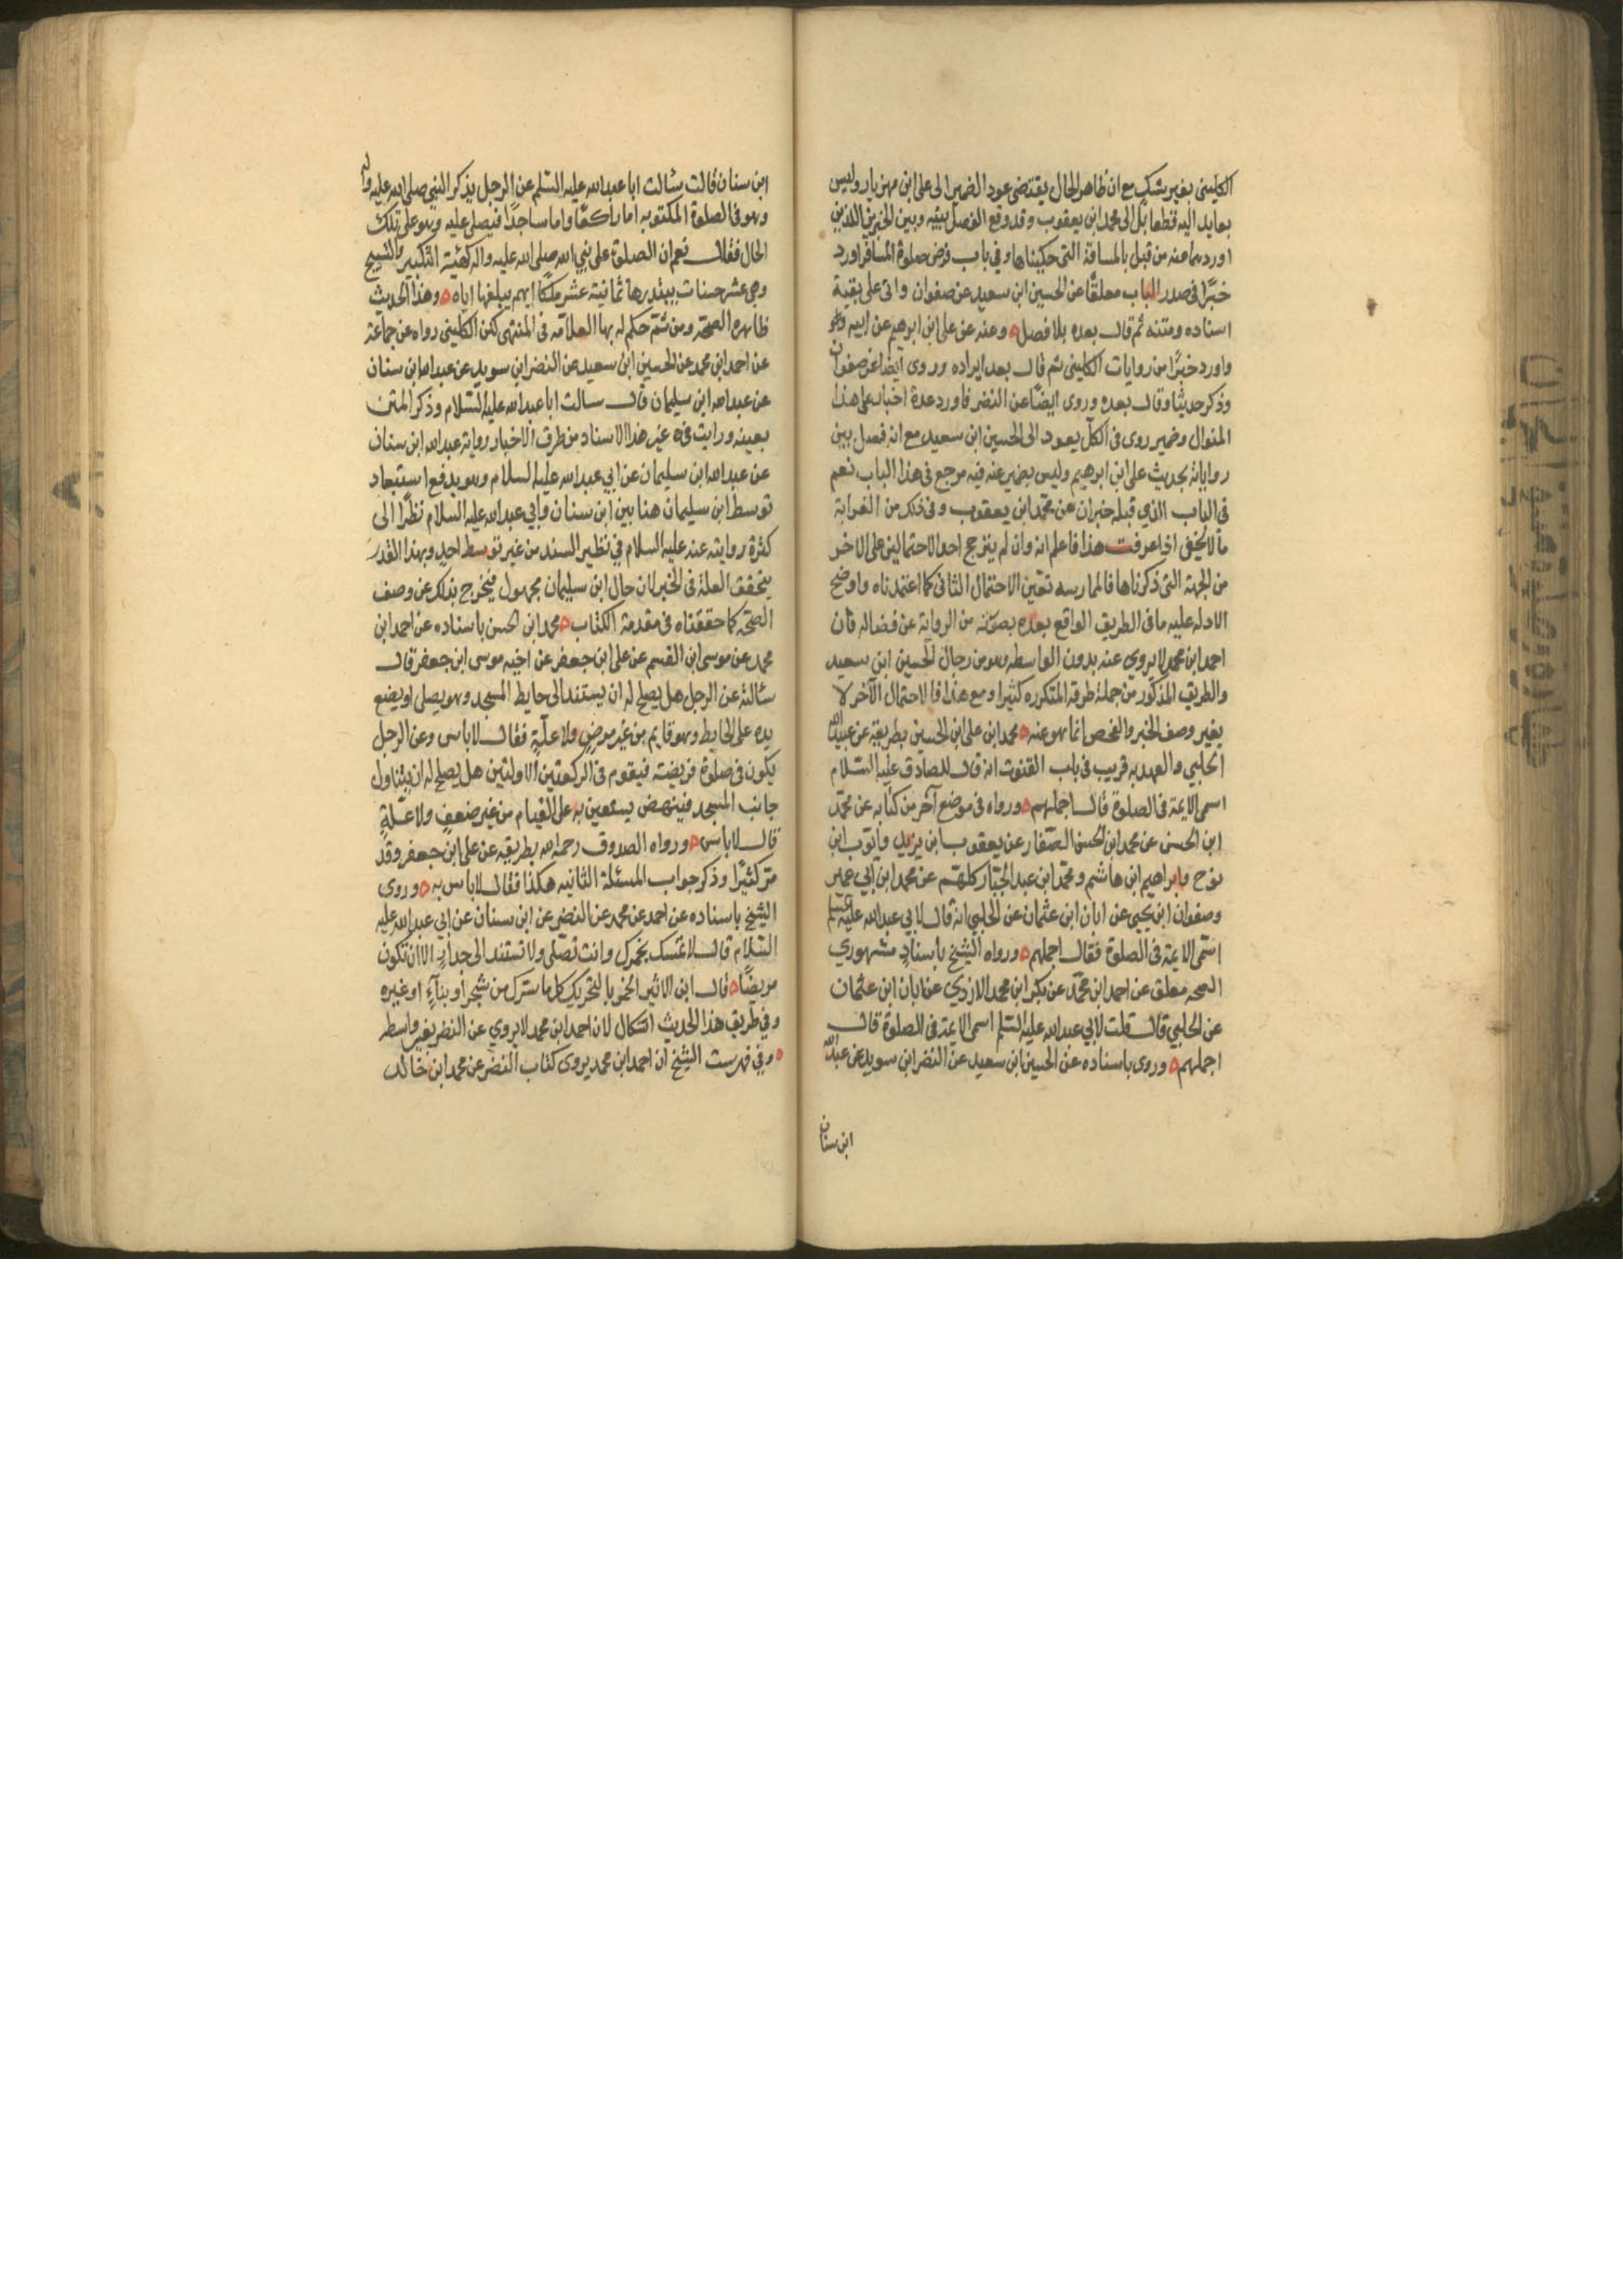 الكليني بغير شك مع ان ظاهر الحال يقتضي عود الضمير الى على ابن مهزيار وليس
بعايد اليه قطعا بل الى محمد ابن يعقوب وقد وقع الفصل بينه وبين الخبرين اللذين
اوردهما عنه من قبل بالمسافة التى حكيناها وفي باب فرض صلوة المسافر اورد
خبرًا فى صدر الباب معلقًا عن الحسين ابن سعيد عن صفوان واتى على بقية
اسناده ومتنه ثم قال بعده بلا فصل وعنه عن على ابن ابرهيم عن ابيه
واورد خبرًا من روايات الكليني ثم قال بعد ايراده وروى ايضا عن صفوان
وذكر حديثا وقال بعده وروى ايضًا عن النضر فاورد عدة اخبار على هذا
المنوال وضمير روى فى الكل يعود الى الحسين ابن سعيد مع انه فصل بين
رواياته بحديث على ابن ابرهيم وليس لضمير عنه فيه مرجع فى هذا الباب نعم
فى الباب الذي قبله خبران عن محمد ابن يعقوب وفى ذلك من الغرابة
ما لا يخفى اذا عرفت هذا فاعلم انه وان لم يترجح احد الاحتمالين على الاخر
من الجهة التى ذكرناها فالممارسه تعين الاحتمال الثانى كما اعتمدناه واوضح
الادله عليه ما فى الطريق الواقع بعده بصورته من الرواية عن فضاله فان
احمد ابن محمد لا يروي عنه بدون الواسطه وهو من رجال الحسين ابن سعيد
والطريق المذكور من جملة طرقه المتكرره كثيرا ومع هذا فالاحتمال الآخر لا
يغير وصف الخبر والفحص انما هو عنه محمد ابن على ابن الحسين بطريقه عن عبيد الله
الحلبي والعهد به قريب فى باب القنوت انه قال للصادق عليه السلام
اسمى الايمة فى الصلوة قال اجملهم ورواه فى موضع آخر من كتابه عن محمد
ابن الحسن عن محمد ابن الحسن الصفار عن يعقوب ابن يزيد وايوب ابن
نوح وابراهيم ابن هاشم ومحمد ابن عبد الجبار كلهم عن محمد ابن ابي عمير
وصفوان ابن يحيى عن ابان ابن عثمان عن الحلبي انه قال لابي عبد الله عليه السلم
اسمى الايمة فى الصلوة فقال اجملهم ورواه الشيخ باسنادٍ مشهوري
الصحه معلق عن احمد ابن محمد عن بكر ابن محمد الازدي عن ابان ابن عثمان
عن الحلبي قال قلت لابي عبد الله عليه السلم اسمى الايمة فى الصلوة قال
اجملهم وروى باسناده عن الحسين ابن سعيد عن النضر ابن سويد عن عبد الله
ابن سنان
ابن سنان قالت سئالت ابا عبد الله عليه السلم عن الرجل يذكر النبي صلى الله عليه واله
وهو فى الصلوة المكتوبه اما راكعًا واما ساجدًا فيصلى عليه وهو على تلك
الحال فقال نعم ان الصلوة على نبي الله صلى الله عليه واله كهيئة التكبير والتسبيح
وهي عشر حسنات يبتدرها ثمانية عشر ملكًا ايهم يبلغها اياه وهذا الحديث
ظاهره الصحة ومن ثم حكم له بها العلامه فى المنتهى لكن الكليني رواه عن جماعة
عن احمد ابن محمد عن الحسين ابن سعيد عن النضر ابن سويد عن عبد الله ابن سنان
عن عبد الله ابن سليمان قال سالت ابا عبد الله عليه السلام وذكر المتن
بعينه ورايت فى غير هذا الاسناد من طرق الاخبار رواية عبد الله ابن سنان
عن عبد الله ابن سليمان عن ابي عبد الله عليه السلام وهو يدفع استبعاد
توسط ابن سليمان هنا بين ابن سنان وابي عبد الله عليه السلام نظرًا الى
كثرة روايته عنه عليه السلام في نظير السند من غير توسط احدٍ وبهذا القدر
يتحقق العلة فى الخبر لان حال ابن سليمان مجهول فيخرج بذلك عن وصف
الصحه كما حققناه فى مقدمة الكتاب محمد ابن الحسن باسناده عن احمد ابن
محمد عن موسى ابن القسم عن على ابن جعفر عن اخيه موسى ابن جعفر قال
سئالته عن الرجل هل يصلح له ان يستند الى حايط المسجد وهو يصلى او يضع
يده على الحايط وهو قايم من غير مرضٍ ولا علّةٍ فقال لا باس وعن الرجل
يكون فى صلوة فريضته فيقوم فى الركعتين الاولتين هل يصلح له ان يتناول
جانب المسجد فينهض يستعين به على القيام من غير ضعفٍ ولا علّةٍ
قال لا باس ورواه الصدوق رحمه الله بطريقه عن على ابن جعفر وقد
مر كثيرًا وذكر جواب المسئلة الثانيه هكذا فقال لا باس به وروى
الشيخ باسناده عن احمد عن محمد عن النضر عن ابن سنان عن ابي عبد الله عليه
السلام قال لا تمسك بخمرك وانت تصلى ولا تستند الى جدارٍ الا ان تكون
مريضًا قال ابن الاثير الخمر بالتحريك كل ما سترك من شجر او بناءٍ او غيره
وفي طريق هذا الحديث اشكال لان احمد ابن محمد لا يروي عن النضر بغير واسطه
وفي فهرست الشيخ ان احمد ابن محمد يروى كتاب النضر عن محمد ابن خالد